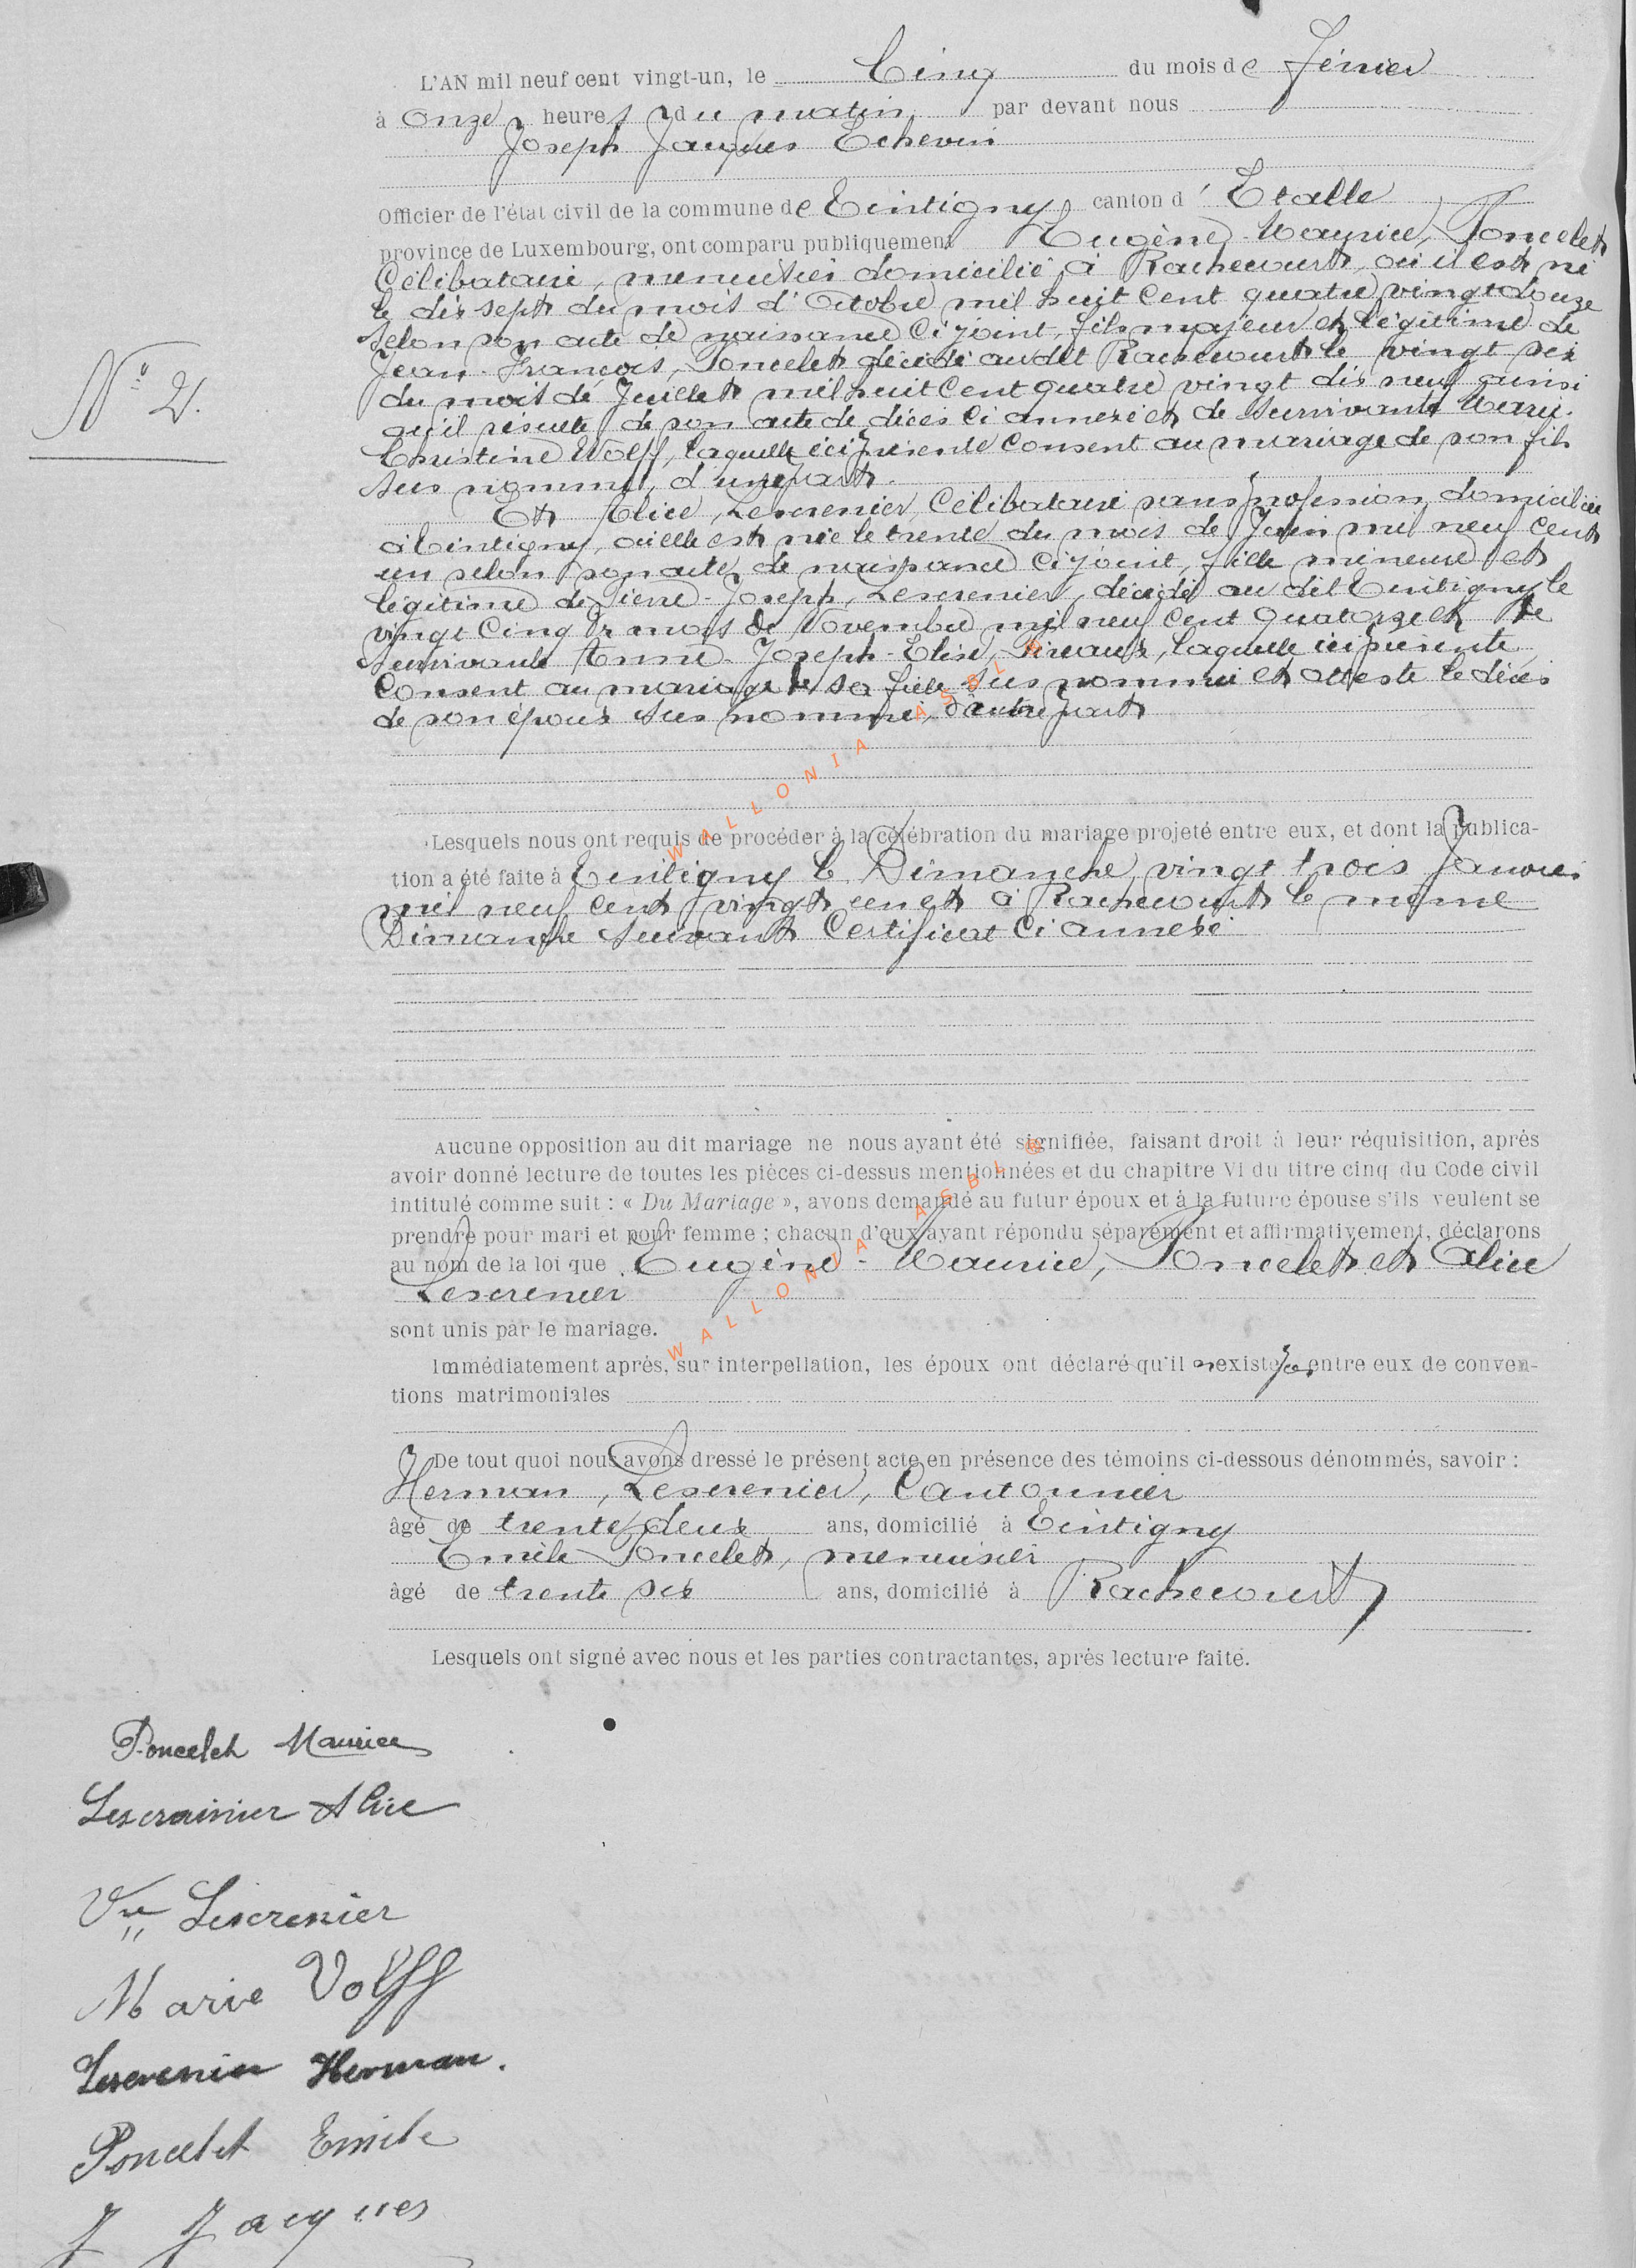 L'AN mil neuf cent vingt-un, le Cinq du mois de Février
à Onze heures du matin par devant nous
Joseph Jacques Echevin
Officier de l'état civil de la commune de Tintigny canton d' Etalle
province de Luxembourg, ont comparu publiquement Eugène-Maurice, Poncelet
Célibataire, menuisier domicilié à Rachecourt, où il est né
le dix sept du mois d'Octobre mil huit cent quatre vingt douze
selon son acte de naissance ci joint, fils majeur et légitime de
Jean-François, Poncelet décédé au dit Rachecourt le vingt six
du mois de Juillet mil huit cent quatre vingt dix neuf ainsi
qu'il résulte de son acte de décès ci annexé et de survivante Marie-
Christine Wolff, laquelle ici présente consent au mariage de son fils
sus nommé, d'une part.
Et Alice, Lescrenier, Célibataire sans profession, domiciliée
à Tintigny, où elle est née le trente du mois de Juin mil neuf cent
un selon son acte de naissance ci joint, fille mineure et
légitime de Pierre-Joseph, Lescrenier, décédé au dit Tintigny le
vingt cinq du mois de Novembre mil neuf cent quatorze et de
survivante Anne-Joseph-Elise, laquelle ici présente
consent au mariage de sa fille sus nommée et atteste le décès
de son époux sus nommé, d'autre part
Nº 2.
Lesquels nous ont requis de procéder à la célébration du mariage projeté entre eux, et dont la publica-
tion a été faite à Tintigny le Dimanche vingt trois Janvier
mil neuf cent vingt un et à Rachecourt le même
Dimanche suivant Certificat ci annexé
Aucune opposition au dit mariage ne nous ayant été signifiée, faisant droit à leur réquisition, après
avoir donné lecture de toutes les pièces ci-dessus mentionnées et du chapitre VI du titre cinq du Code civil
intitulé comme suit : « Du Mariage », avons demandé au futur époux et à la future épouse s'ils veulent se
prendre pour mari et pour femme ; chacun d'eux ayant répondu séparément et affirmativement, déclarons
au nom de la loi que Eugène-Maurice, Poncelet et Alice
Lescrenier
sont unis par le mariage.
Immédiatement après, sur interpellation, les époux ont déclaré qu'il n'existe pas entre eux de conven-
tions matrimoniales
De tout quoi nous avons dressé le présent acte en présence des témoins ci-dessous dénommés, savoir :
Herman, Lescrenier, Cantonnier
âgé de trente deux ans, domicilié à Tintigny
Emile Poncelet, menuisier
âgé de trente six ans, domicilié à Rachecourt
Lesquels ont signé avec nous et les parties contractantes, après lecture faite.
Poncelet Maurice
Lescrainier Alice
Vve Lescrenier
Marie Volff
Lescrenier Herman.
Poncelet Emile
J Jacques
WALLONIA ASBL ®
WALLONIA ASBL ®